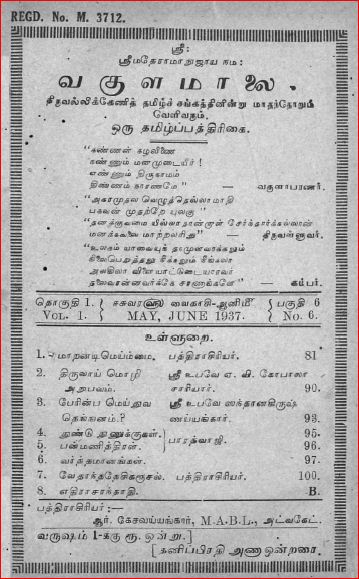 REGD. No. M. 3712.
ஸ்ரீ:
ஸ்ரீமதேராமாநுஜாய நம:
வகுளமாலை.
திருவல்லிக்கேணித் தமிழ்ச் சங்கத்தினின்று மாதந்தோறும்
வெளிவரும்.
ஒரு தமிழ்ப்பத்திரிகை.
"கண்ணன் கழலிணை
நண்ணும் மனமுடையீர்!
எண்ணும் திருநாமம்
திண்ணம் நாரணமே" — வகுளாபரணர்.
"அகரமுதல வெழுத்தெல்லாமாதி
பகவன் முதற்றே யுலகு"
"தனக்குவமை யில்லாதான்றாள் சேர்ந்தார்க்கல்லான்
மனக்கவலை மாற்றலரிது" — திருவள்ளுவர்.
"உலகம் யாவையுந் தாமுளவாக்கலும்
நிலைபெறுத்தலு நீக்கலும் நீங்கலா
அலகிலா விளையாட்டுடையாரவர்
தலைவரன்னவர்க்கே சரணாங்களே" — கம்பர்.
தொகுதி 1. ஈசுவரஹு வைகாசி-ஆனிமீ பகுதி 6
VOL. 1. MAY, JUNE 1937. No. 6.
உள்ளுறை.
1. மாறனடிமெய்ம்மை. பத்திராதிபர். 81
2. திருவாய் மொழி ஸ்ரீ உபவே ஏ. வி. கோபாலா
அநுபவம். சாரியார். 90.
3. பேரின்ப மெய்துவ ஸ்ரீ உபவே ஸந்தானகிருஷ்
தெங்ஙனம்.? ணய்யங்கார். 93.
4. துண்டு துணுக்குகள். 95.
5. பன்மணித்திரள். பாரத்வாஜி. 96.
6. வர்த்தமானங்கள். 97.
7. வேதாந்ததேசிகருசல். பத்திராதிபர். 100.
8. எதிராசாந்தாதி. B.
பத்திராதிபர்:—
ஆர். கேசவய்யங்கார், M.A.B.L., அட்வகேட்.
வருஷம் 1-க்கு ரூ. ஒன்று.]
[தனிப்பிரதி அணா ஒன்றரை.